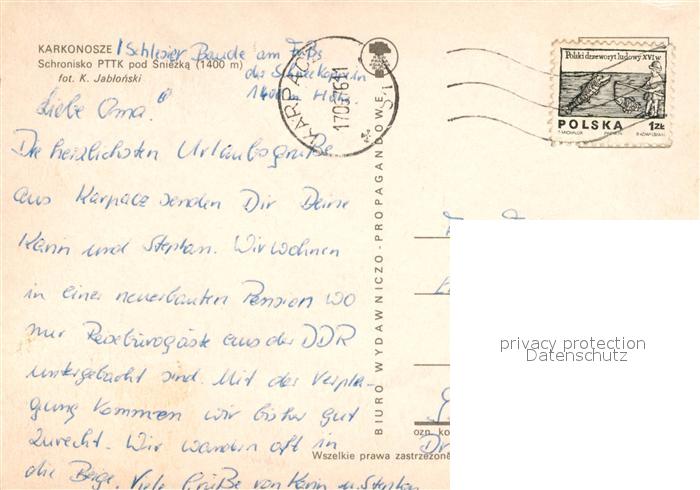 KARKONOSZE / Schlesier Baude am Fuße
Schronisko PTTK pod Śnieżką (1400 m)
der Schneekoppe in
fot. K. Jabłoński
1400 m Höhe
Liebe Oma!
Die herzlichsten Urlaubsgrüße
aus Karpacz senden Dir Deine
Karin und Stephan. Wir wohnen
in einer neuerbauten Pension wo
nur Reisebürogäste aus der DDR
untergebracht sind. Mit der Verpfle-
gung kommen wir bisher gut
zurecht. Wir wandern oft in
die Berge. Viele Grüße von Karin u. Stephan
KARPACZ
BIURO WYDAWNICZO-PROPAGANDOWE
Polski drzeworyt ludowy XVI w
POLSKA 1 ZŁ
ozn. ko
Wszelkie prawa zastrzeżone
Dr
privacy protection
Datenschutz